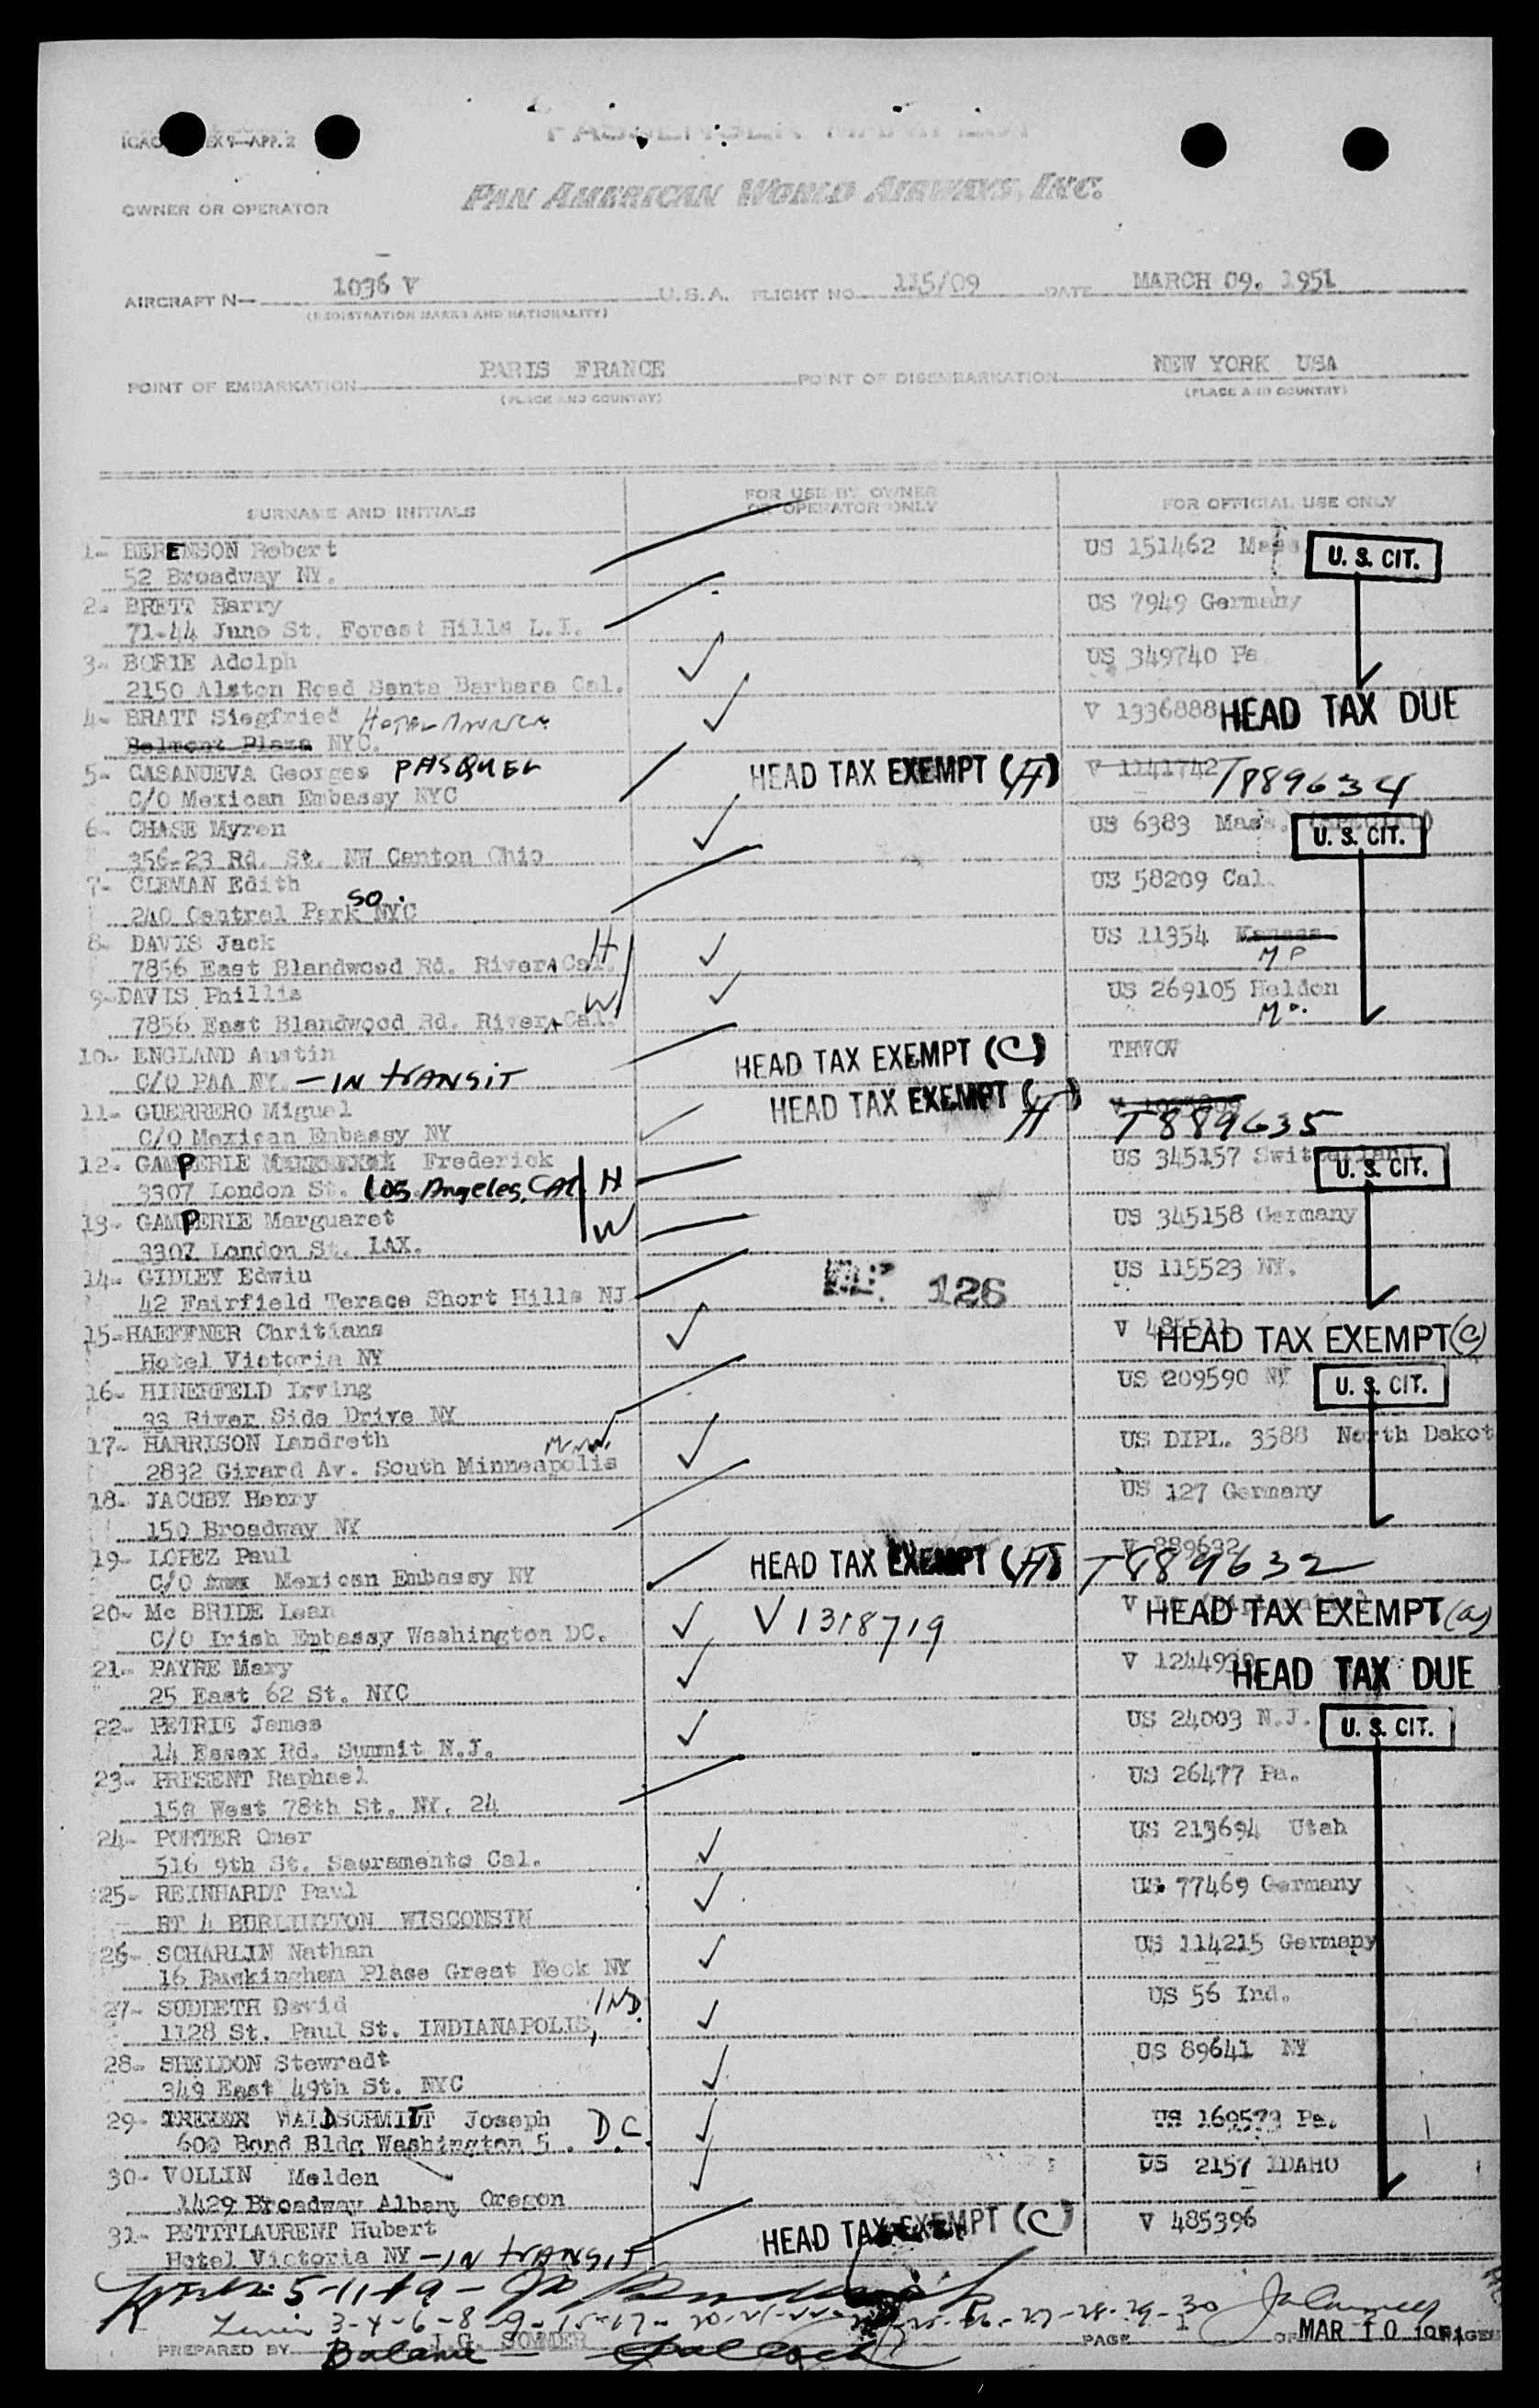 ICAO EX 9—APP. 2
PAN AMERICAN WORLD AIRWAYS, INC.
OWNER OR OPERATOR
AIRCRAFT N— 1036 V U.S.A. FLIGHT NO. 115/09 DATE MARCH 09. 1951
(REGISTRATION MARKS AND NATIONALITY)
POINT OF EMBARKATION PARIS FRANCE POINT OF DISEMBARKATION NEW YORK USA
(PLACE AND COUNTRY) (PLACE AND COUNTRY)
SURNAME AND INITIALS FOR USE BY OWNER OR OPERATOR ONLY FOR OFFICIAL USE ONLY
1- BERENSON Robert US 151462 Mass U. S. CIT.
52 Broadway NY.
2- BRETT Harry US 7949 Germany
71-44 June St. Forest Hills L.I.
3- BORIE Adolph US 349740 Pa
2150 Alston Road Santa Barbara Cal.
4- BRATT Siegfried HOTEL V 1336888 HEAD TAX DUE
Belmont Plaza NYC.
5- CASANUEVA Georges PASQUEL HEAD TAX EXEMPT (H) V 1141742 T889634
C/O Mexican Embassy NYC
6- CHASE Myron US 6383 Mass. (SPECIAL) U. S. CIT.
356-23 Rd. St. NW Canton Ohio
7- CLEMAN Edith US 58209 Cal.
240 Central Park SO. NYC
8- DAVIS Jack H US 11354 Kansas MP
7856 East Blandwood Rd. Rivera Cal.
9- DAVIS Phillis W US 269105 Heldon Mo.
7856 East Blandwood Rd. Rivera Cal.
10- ENGLAND Austin HEAD TAX EXEMPT (C) TRWOV
C/O PAA NY - IN TRANSIT
11- GUERRERO Miguel HEAD TAX EXEMPT (H) T889635
C/O Mexican Embassy NY
12- GAMPERLE Frederick H US 345157 Switzerland U. S. CIT.
3307 London St. LOS Angeles, CAL
13- GAMPERLE Marguaret W US 345158 Germany
3307 London St. LAX.
14- GIDLEY Edwiu 126 US 115523 NY.
42 Fairfield Terace Short Hills NJ
15- HAEFFNER Chritians V 485511 HEAD TAX EXEMPT (C)
Hotel Victoria NY
16- HINERFELD Irving US 209590 NY U. S. CIT.
33 River Side Drive NY
17- HARRISON Landreth Minn. US DIPL. 3588 North Dakot
2832 Girard Av. South Minneapolis
18- JACOBY Henry US 127 Germany
150 Broadway NY
19- LOPEZ Paul HEAD TAX EXEMPT (H) V 889632 T889632
C/O Mexican Embassy NY
20- Mc BRIDE Lean V 1318719 V HEAD TAX EXEMPT (a)
C/O Irish Embassy Washington DC.
21- PAYRE Mary V 1244930 HEAD TAX DUE
25 East 62 St. NYC
22- PETRIE James US 24003 N.J. U. S. CIT.
14 Essex Rd. Summit N.J.
23- PRESENT Raphael US 26477 Pa.
158 West 78th St. NY. 24
24- PORTER Omer US 213694 Utah
516 9th St. Sacramento Cal.
25- REINHARDT Paul US 77469 Germany
RT 4 BURLINGTON WISCONSIN
26- SCHARLIN Nathan US 114215 Germany
16 Buckingham Place Great Neck NY
27- SUDDETH David IND. US 56 Ind.
1128 St. Paul St. INDIANAPOLIS,
28- SHELDON Stewradt US 89641 NY
349 East 49th St. NYC
29- WALDSCHMIDT Joseph D.C. US 169573 Pa.
600 Bond Bldg Washington 5.
30- VOLLIN Melden US 2157 IDAHO
1429 Broadway Albany Oregon
31- PETITLAURENT Hubert HEAD TAX EXEMPT (C) V 485396
Hotel Victoria NY - IN TRANSIT
5-11-19-
3-4-6-8-9-15-17-20-21-22 25-26-27-28-29-30
PREPARED BY J.G. SOMMER PAGE 1 OF PAGES
Balance
MAR 10 1951